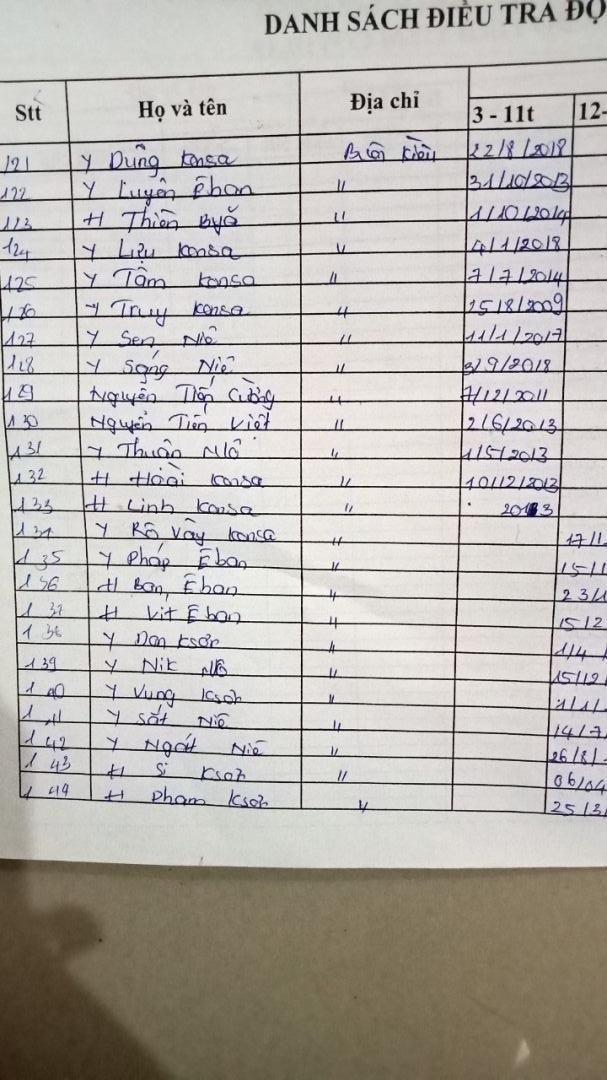 DANH SÁCH ĐIỀU TRA ĐỘ
Stt Họ và tên Địa chỉ 3 - 11t 12-
121 Y Dũng Konsa Buôn Kiều 22/8/2018
122 Y Luyên Êban " 31/10/2013
123 H Thiên Byă " 1/10/2014
124 Y Liệu Konsa " 4/1/2018
125 Y Tâm Konsa " 7/7/2014
126 Y Truy Konsa " 25/8/2009
127 Y Sen Niê " 11/1/2017
128 Y Sáng Niê " 3/9/2018
129 Nguyễn Tiến Cường " 7/12/2011
130 Nguyễn Tiến Việt " 2/6/2013
131 Y Thuân Mlô " 1/5/2013
132 H Hoài Konsa " 10/12/2013
133 H Linh Konsa " 2013
134 Y Rô Vây Konsa " 17/1
135 Y Pháp Êban " 15/1
136 H Ban Êban " 23/1
137 H Vit Êban " 15/2
138 Y Dan Ksơr " 1/4/
139 Y Nik " 15/12
140 Y Vung Ksơr " 1/1/
141 Y Sắt Niê " 14/7
142 Y Ngát Niê " 26/8/
143 H Si Ksơr " 06/04
144 H Phạm Ksơr " 25/3